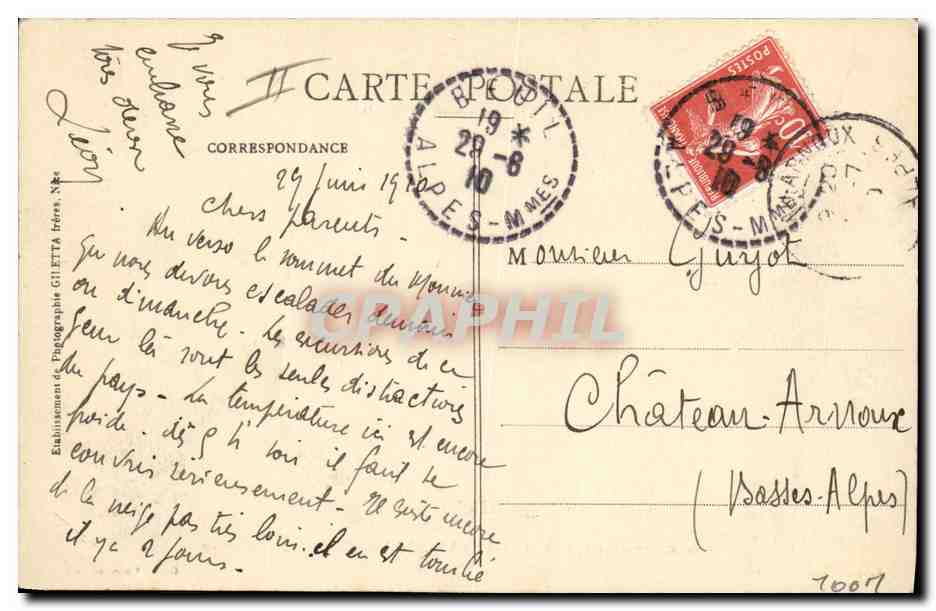 CARTE POSTALE
CORRESPONDANCE
29 Juin 1910
Chers parents -
Au verso le sommet du Mounier
que nous devons escalader demain
ou dimanche - Les excursions de ce
genre là sont les seules distractions
du pays - La température ici est encore
froide - dès 5 h soir il faut se
couvrir sérieusement - Il reste encore
de la neige pas très loin. il en est tombé
il y a 2 jours -
Je vous
embrasse
Léon
BEUIL
19 *
29 -6
10
ALPES-MMES
POSTES
REPUBLIQUE FRANÇAISE
10 c
19 *
29 -6
10
ALPES-MMES
ARNOUX
Monsieur Guyot
Château-Arnoux
(Basses-Alpes)
Etablissement de Photographie GILETTA frères, Nice
CPAPHIL
1001